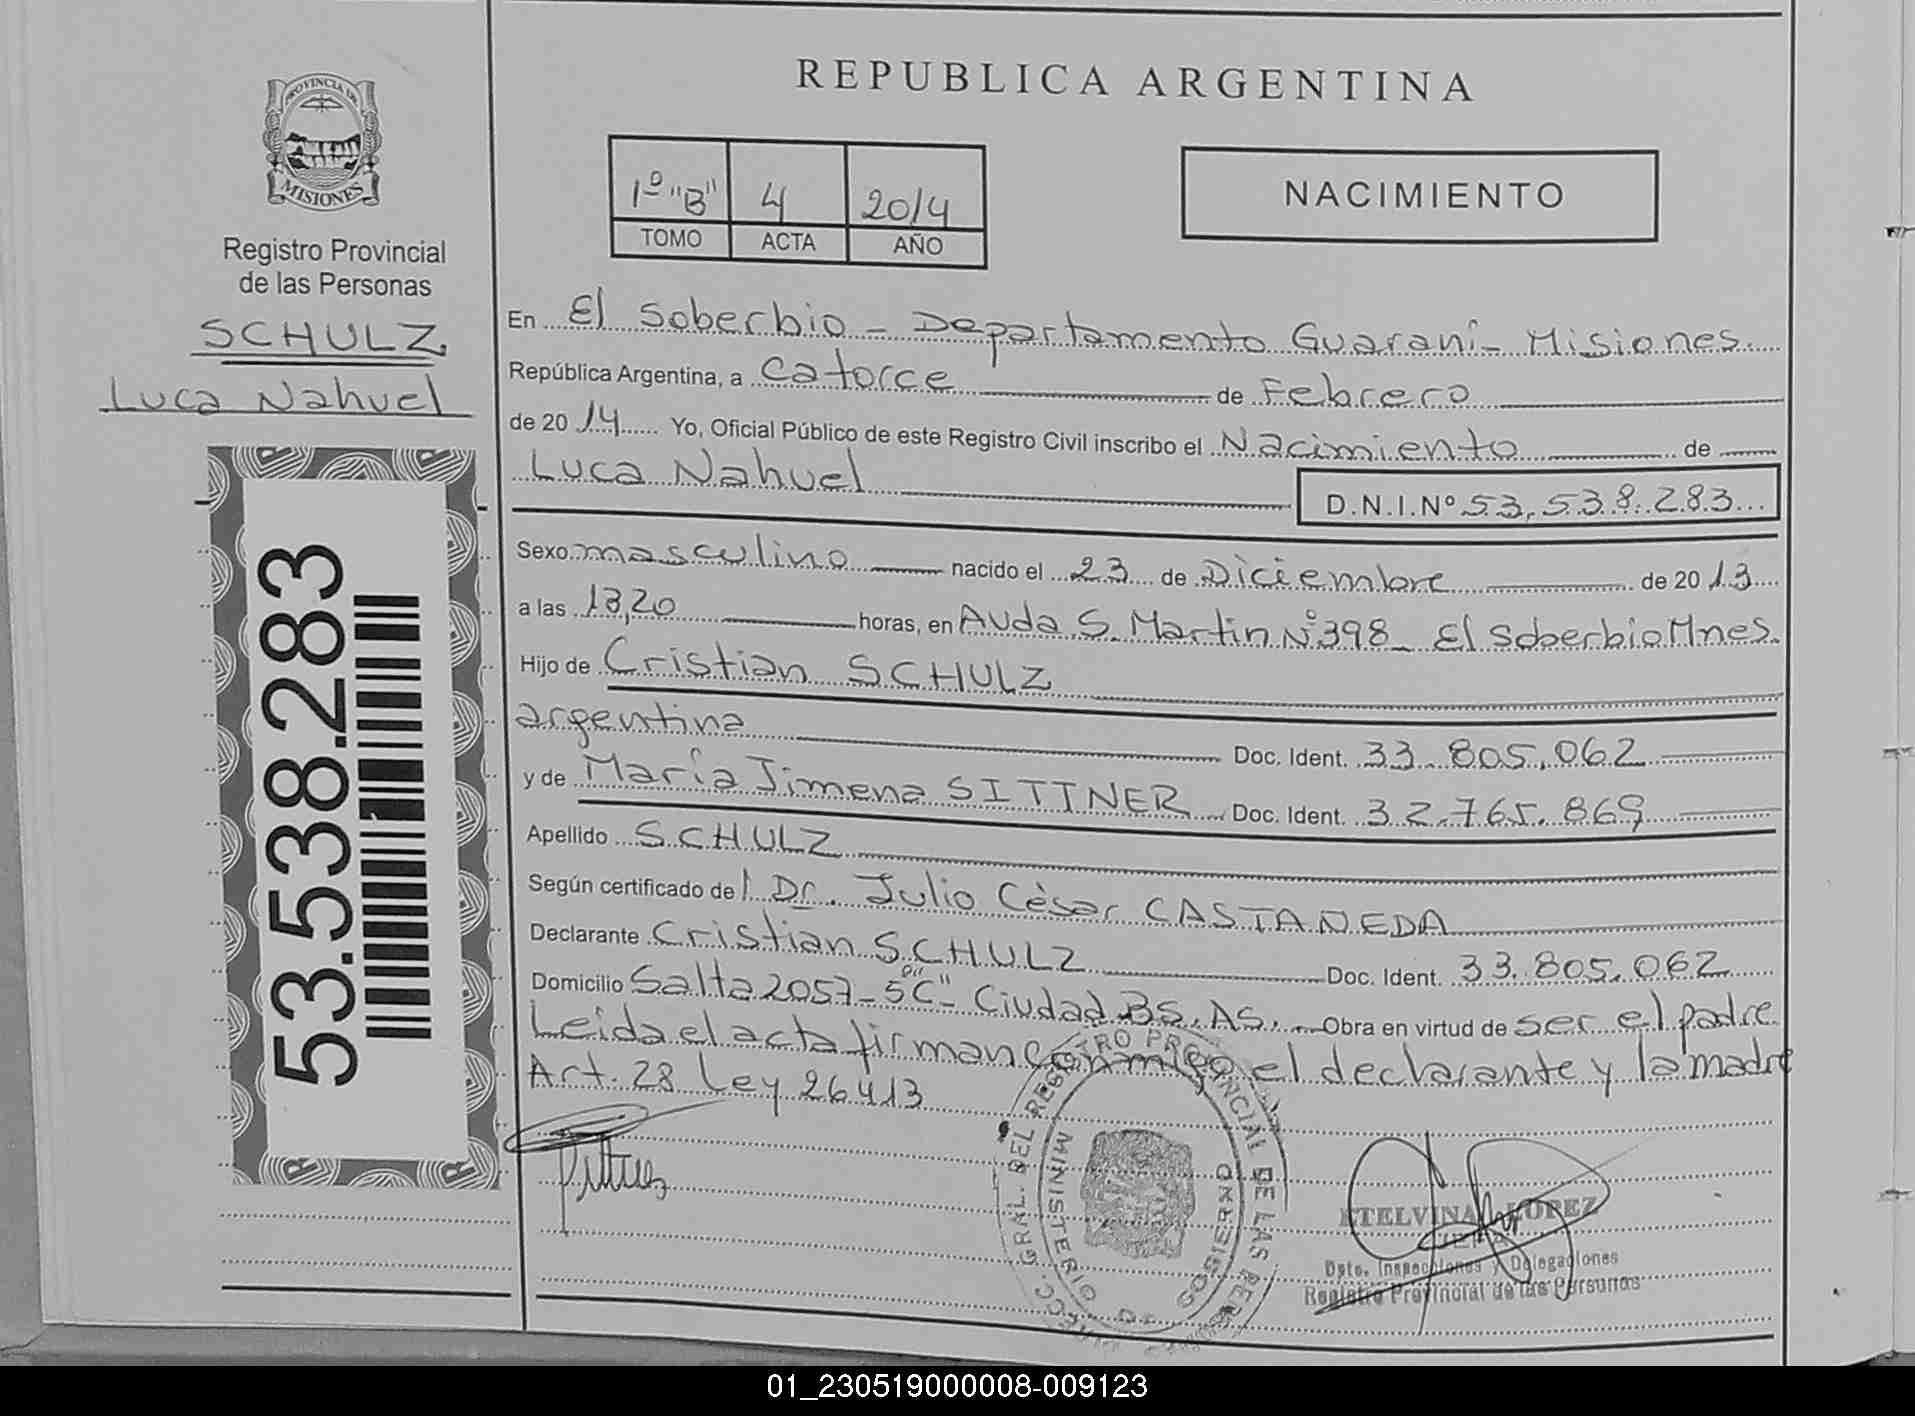 PROVINCIA DE
MISIONES
Registro Provincial
de las Personas
SCHULZ
Luca Nahuel
53.538.283
REPUBLICA ARGENTINA
1º "B" 4 2014
TOMO ACTA AÑO
NACIMIENTO
En El Soberbio - Departamento Guaraní - Misiones.
República Argentina, a Catorce de Febrero
de 2014 Yo, Oficial Público de este Registro Civil inscribo el Nacimiento de
Luca Nahuel D.N.I.Nº 53.538.283
Sexo masculino nacido el 23 de Diciembre de 2013
a las 13,20 horas, en Avda S. Martin Nº 398 - El Soberbio Mnes.
Hijo de Cristian SCHULZ
argentina Doc. Ident. 33.805.062
y de María Jimena SITTNER Doc. Ident. 32.765.869
Apellido SCHULZ
Según certificado del Dr. Julio Cèsar CASTANEDA
Declarante Cristian SCHULZ Doc. Ident. 33.805.062
Domicilio Salta 2057 - 5 "C" - Ciudad BS. AS. Obra en virtud de ser el padre
Leida el acta firman conmigo el declarante y la madre
Art. 28 Ley 26413
GRAL. DEL REGISTRO PROVINCIAL DE LAS PER
MINISTERIO GOBIERNO
ETELVINA LOPEZ
JEFA
Dpto. Inspecciones y Delegaciones
Registro Provincial de las Personas
01_230519000008-009123